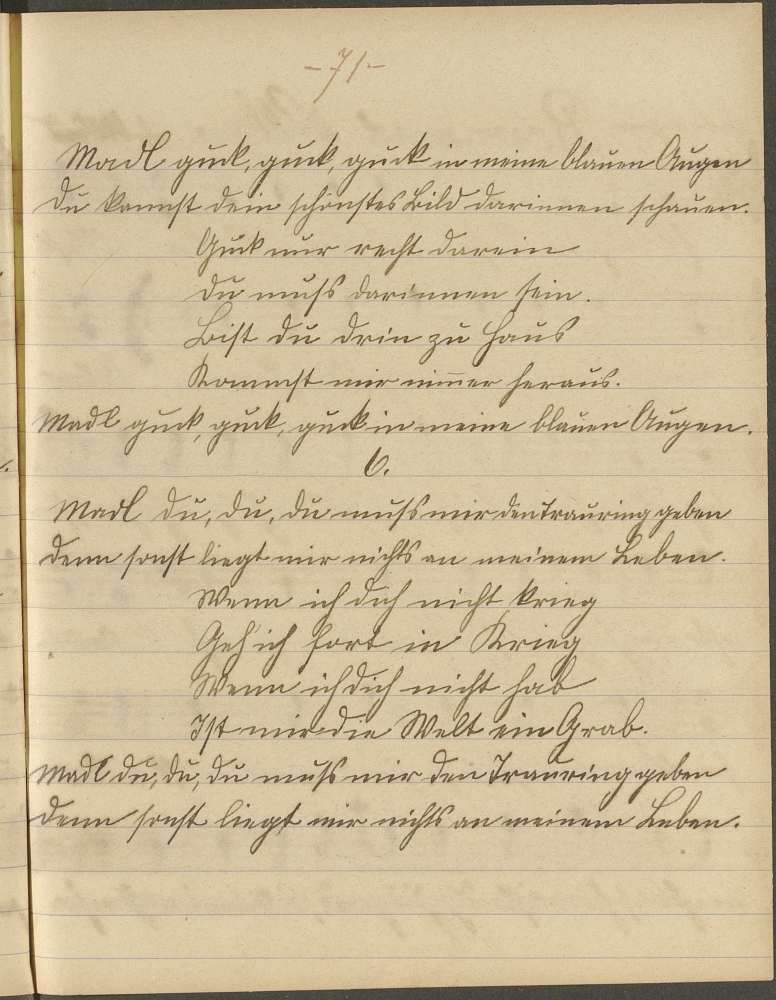 -71-
Madl guck, guck, guck in meine blauen Augen
Du kannst dein schönstes Bild darinnen schauen.
Guck nur recht darein
Du muſs darinnen sein.
Bist du drin zu Haus
Kommst mir nimer heraus.
Madl guck, guck, guck in meine blauen Augen.
6.
Madl du, du, du muſs mir den Trauring geben
denn sonst liegt mir nichts an meinem Leben.
Wenn ich dich nicht krieg
Geh' ich fort in Krieg
Wenn ich dich nicht hab
Ist mir die Welt ein Grab.
Madl du, du, du muſs mir den Trauring geben
denn sonst liegt mir nichts an meinem Leben.